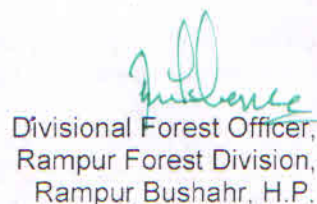 Divisional Forest Officer,
Rampur Forest Division,
Rampur Bushahr, H.P.